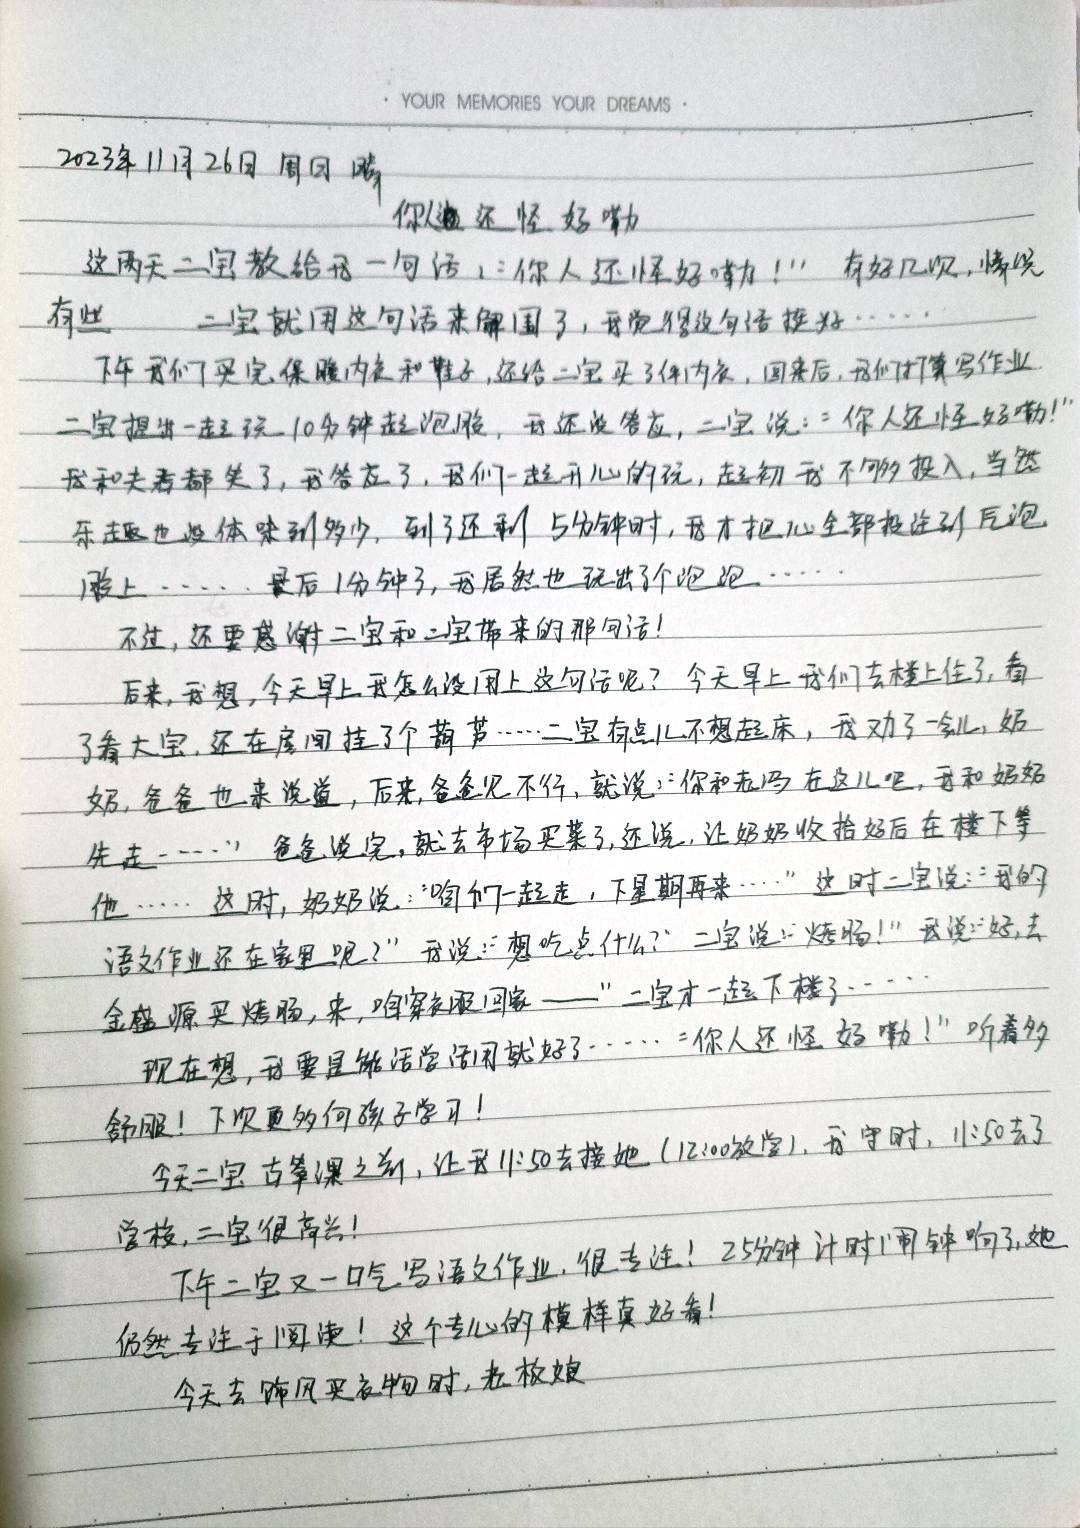 · YOUR MEMORIES YOUR DREAMS ·
2023年11月26日 周日 晴
你人还怪好嘞
这两天二宝教给我一句话,“你人还怪好嘞!” 有好几次,情况
有些 二宝就用这句话来解围了,我觉得这句话挺好……
下午我们买完保暖内衣和鞋子,还给二宝买了件内衣,回来后,我们打算写作业
二宝提出一起玩10分钟起泡胶,我还没答应,二宝说:“你人还怪好嘞!”
我和夫君都笑了,我答应了,我们一起开心的玩,起初我不够投入,当然
乐趣也没体味到多少,到了还剩5分钟时,我才把心全部投注到起泡
胶上…… 最后1分钟了,我居然也玩出了个泡泡……
不过,还要感谢二宝和二宝带来的那句话!
后来,我想,今天早上我怎么没用上这句话呢?今天早上我们去楼上住了,看
了看大宝,还在房间挂了个葫芦……二宝有点儿不想起床,我劝了一会儿,奶
奶,爸爸也来说道,后来,爸爸见不行,就说:“你和老冯在这儿吧,我和奶奶
先走……” 爸爸说完,就去市场买菜了,还说,让奶奶收拾好后在楼下等
他…… 这时,奶奶说:“咱们一起走,下星期再来……”这时二宝说:“我的
语文作业还在家里呢?”我说:“想吃点什么?”二宝说:“烤肠!”我说:“好,去
金盛源买烤肠,来,咱穿衣服回家——”二宝才一起下楼了……
现在想,我要是能活学活用就好了……“你人还怪好嘞!”听着多
舒服!下次更多向孩子学习!
今天二宝古筝课之前,让我11:50去接她(12:00放学),我守时,11:50去了
学校,二宝很高兴!
下午二宝又一口气写语文作业,很专注!25分钟计时闹钟响了,她
仍然专注于阅读!这个专心的模样真好看!
今天去 买衣物时,老板娘